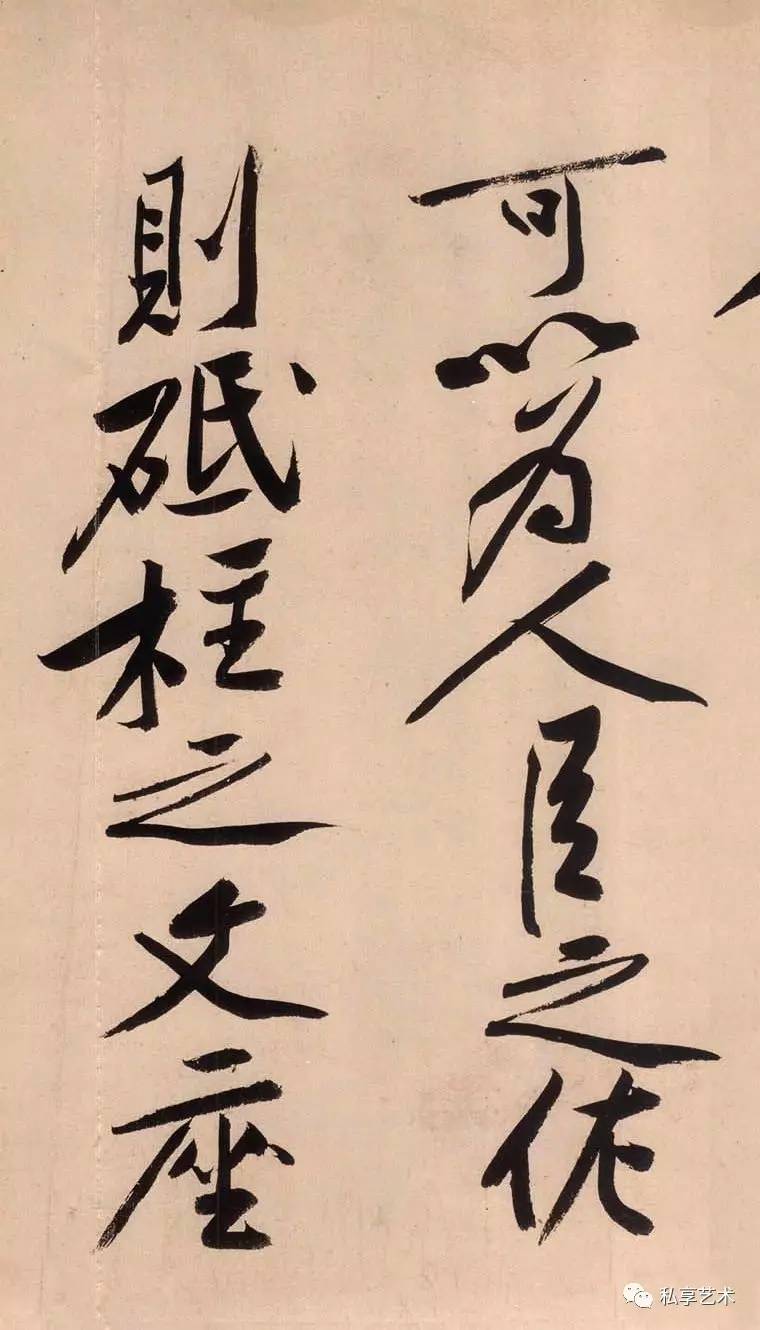 可以为人臣之佐
則砥柱之文座
私享艺术